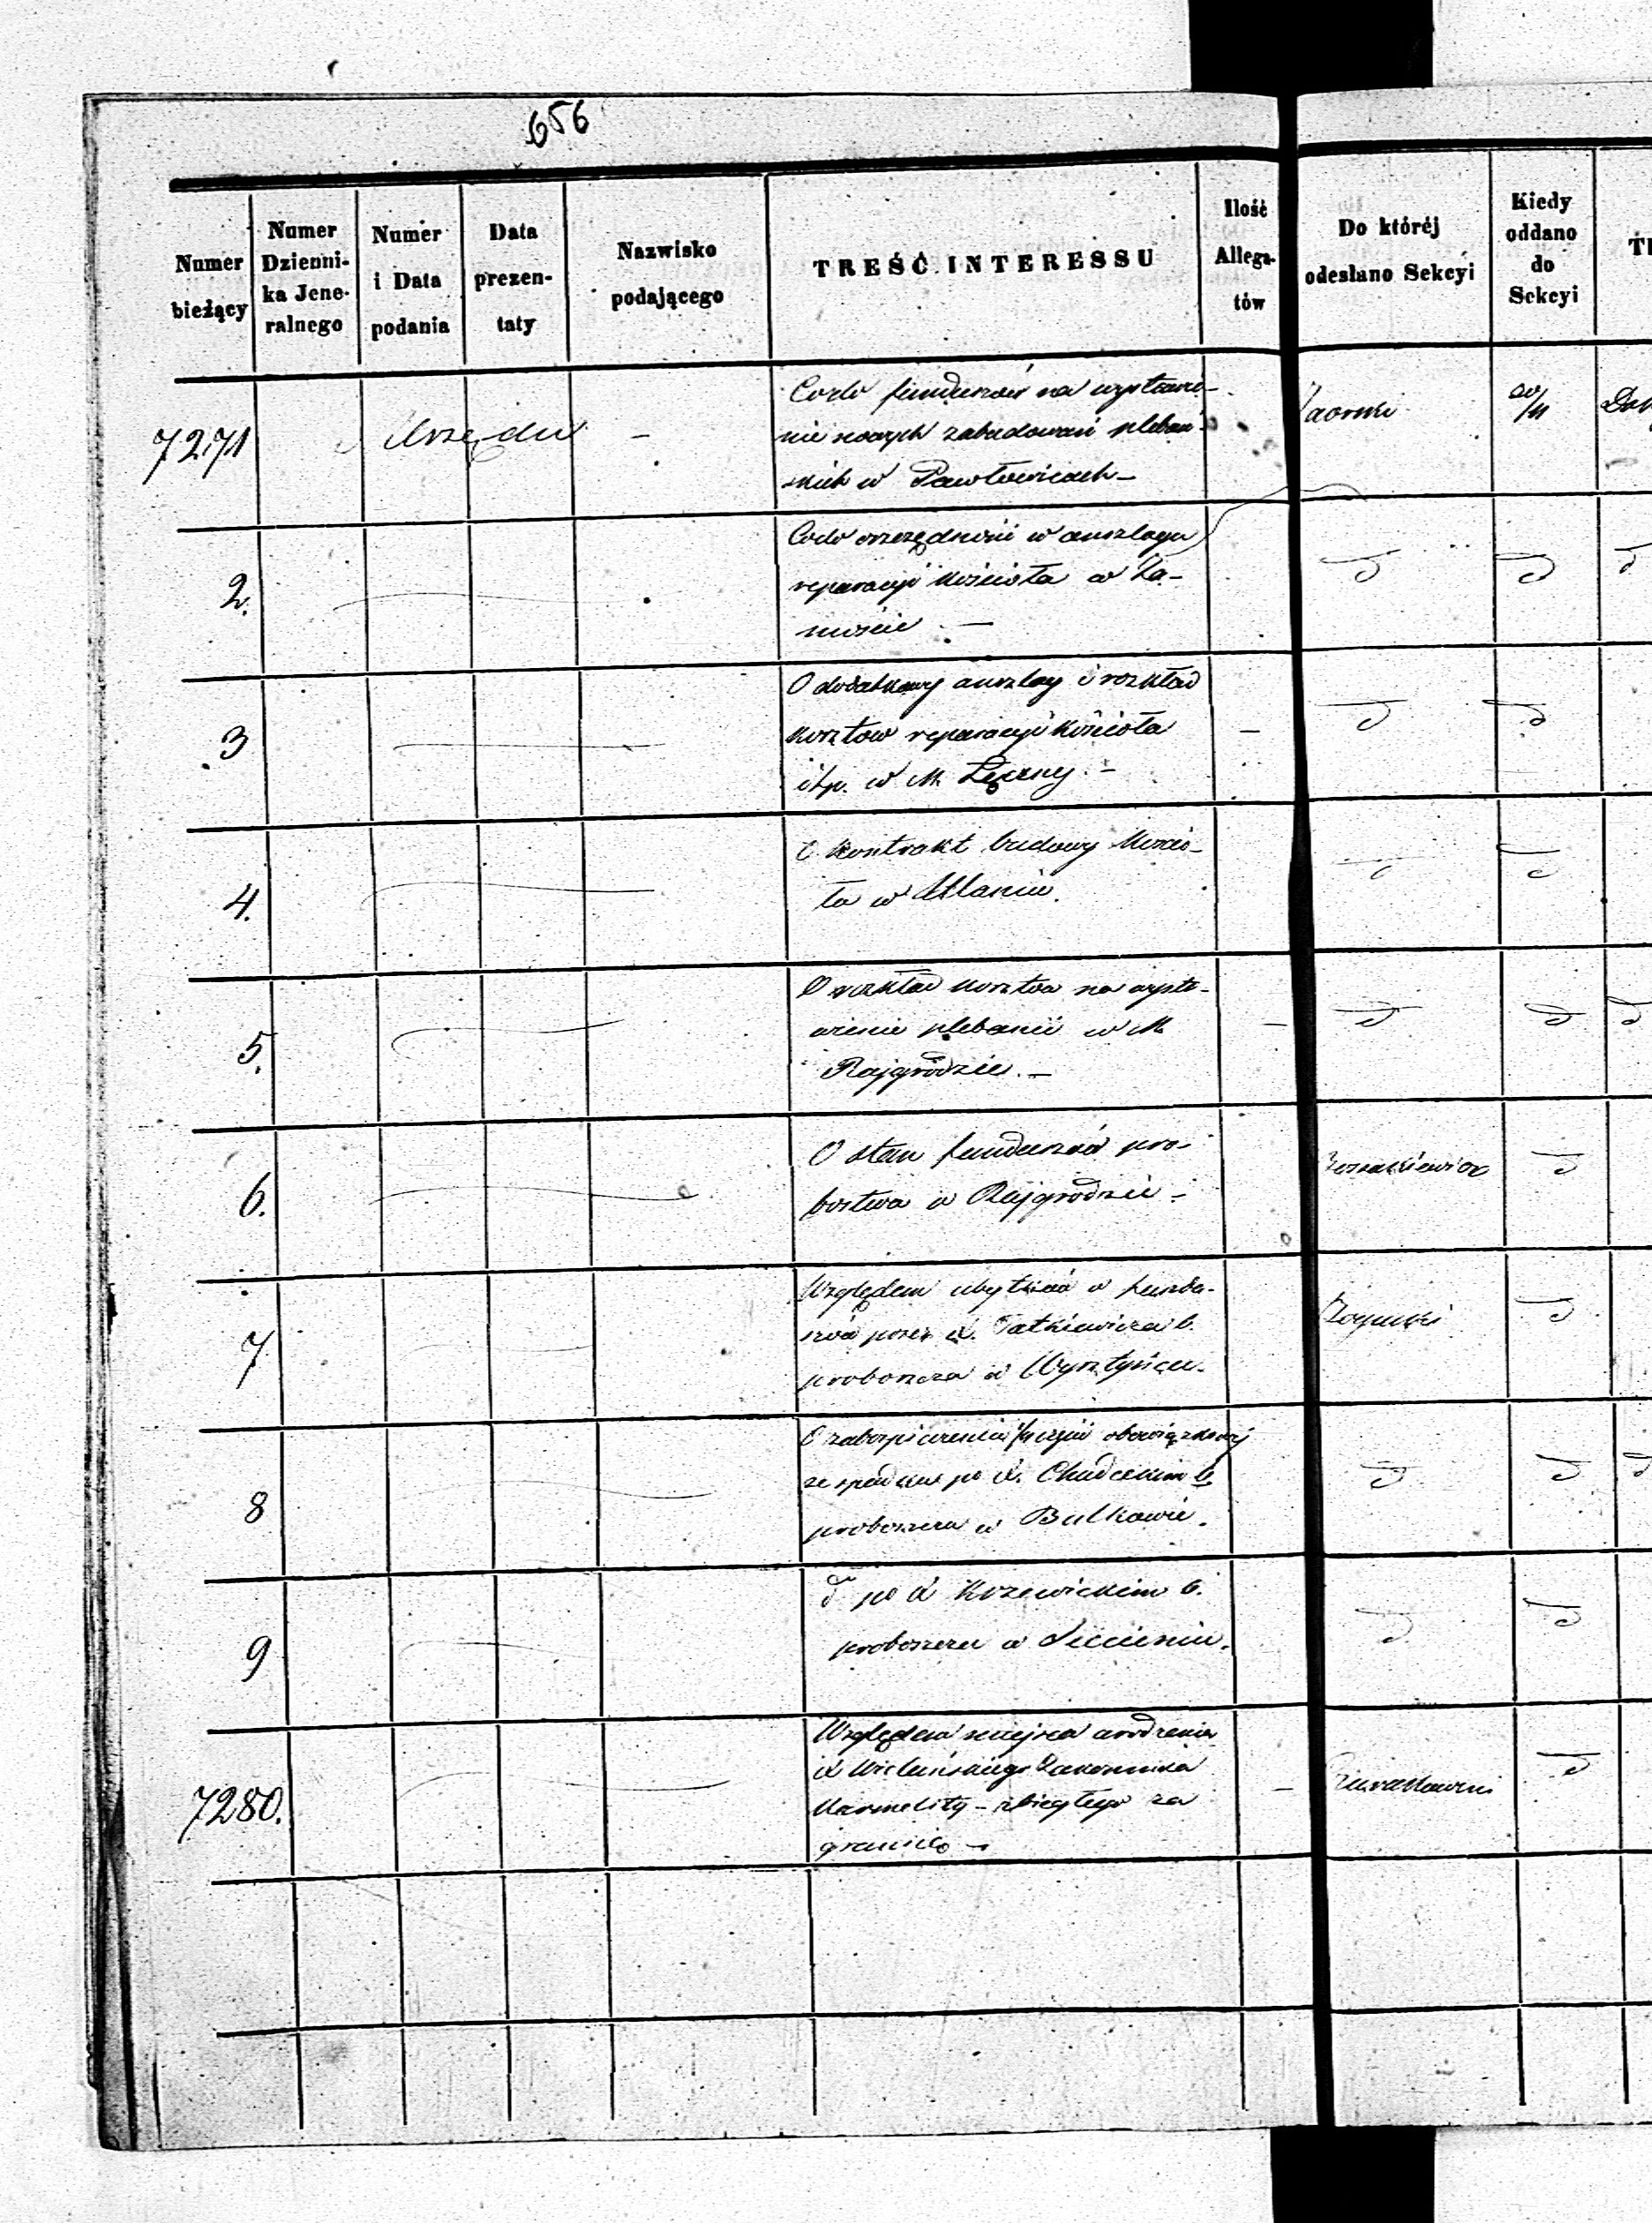 656
Numer bieżący
Numer Dzienni-ka Jene-ralnego
Numer i Data podania
Data prezen-taty
Nazwisko podającego
TREŚĆ INTERESSU
Ilość Allega-tów
Do któréj odesłano Sekcyi
Kiedy oddano do Sekcyi
7271
z Urzędu
Co do funduszów na wystawie-
nie nowych zabudowań plebań-
skich w Pawłowicach —
20/11
2.
Co do w anszlagu
reparacyi kościoła w Za-
mościu —
3
O dodatkowy anszlag i rozkład
kosztów reparacyi kościoła
itp. w M. Łęczny. —
4.
O kontrakt budowy kościo-
ła w
5.
O rozkład kosztów na wysta-
wienie plebanii w M.
Rajgrodzie. —
6.
O stan funduszów pro-
bostwa w Rajgrodzie —
7
Względem ubytków w fundu-
szów przez X. b.
proboszcza w Wysztyńcu.
8
O zabezpieczenie 1/4 części obowiązkowej
ze spadku po X. Chudeckim b.
proboszczu w Bulkowie.
9
d° po X b.
proboszczu w Siecieniu.
7280.
Względem miejsca urodzenia
X Wieluńskiego Zakonnika
Karmelity — zbiegłego za
granicę —